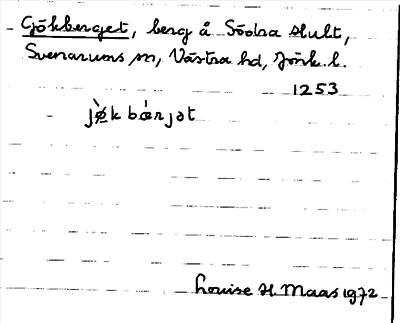 Gjökberget, berg å Södra Hult,
Svenarums sn, Västra hd, Jönk. l.
1253
jø̀k bæ̀rjət
Louise H. Maas 1972